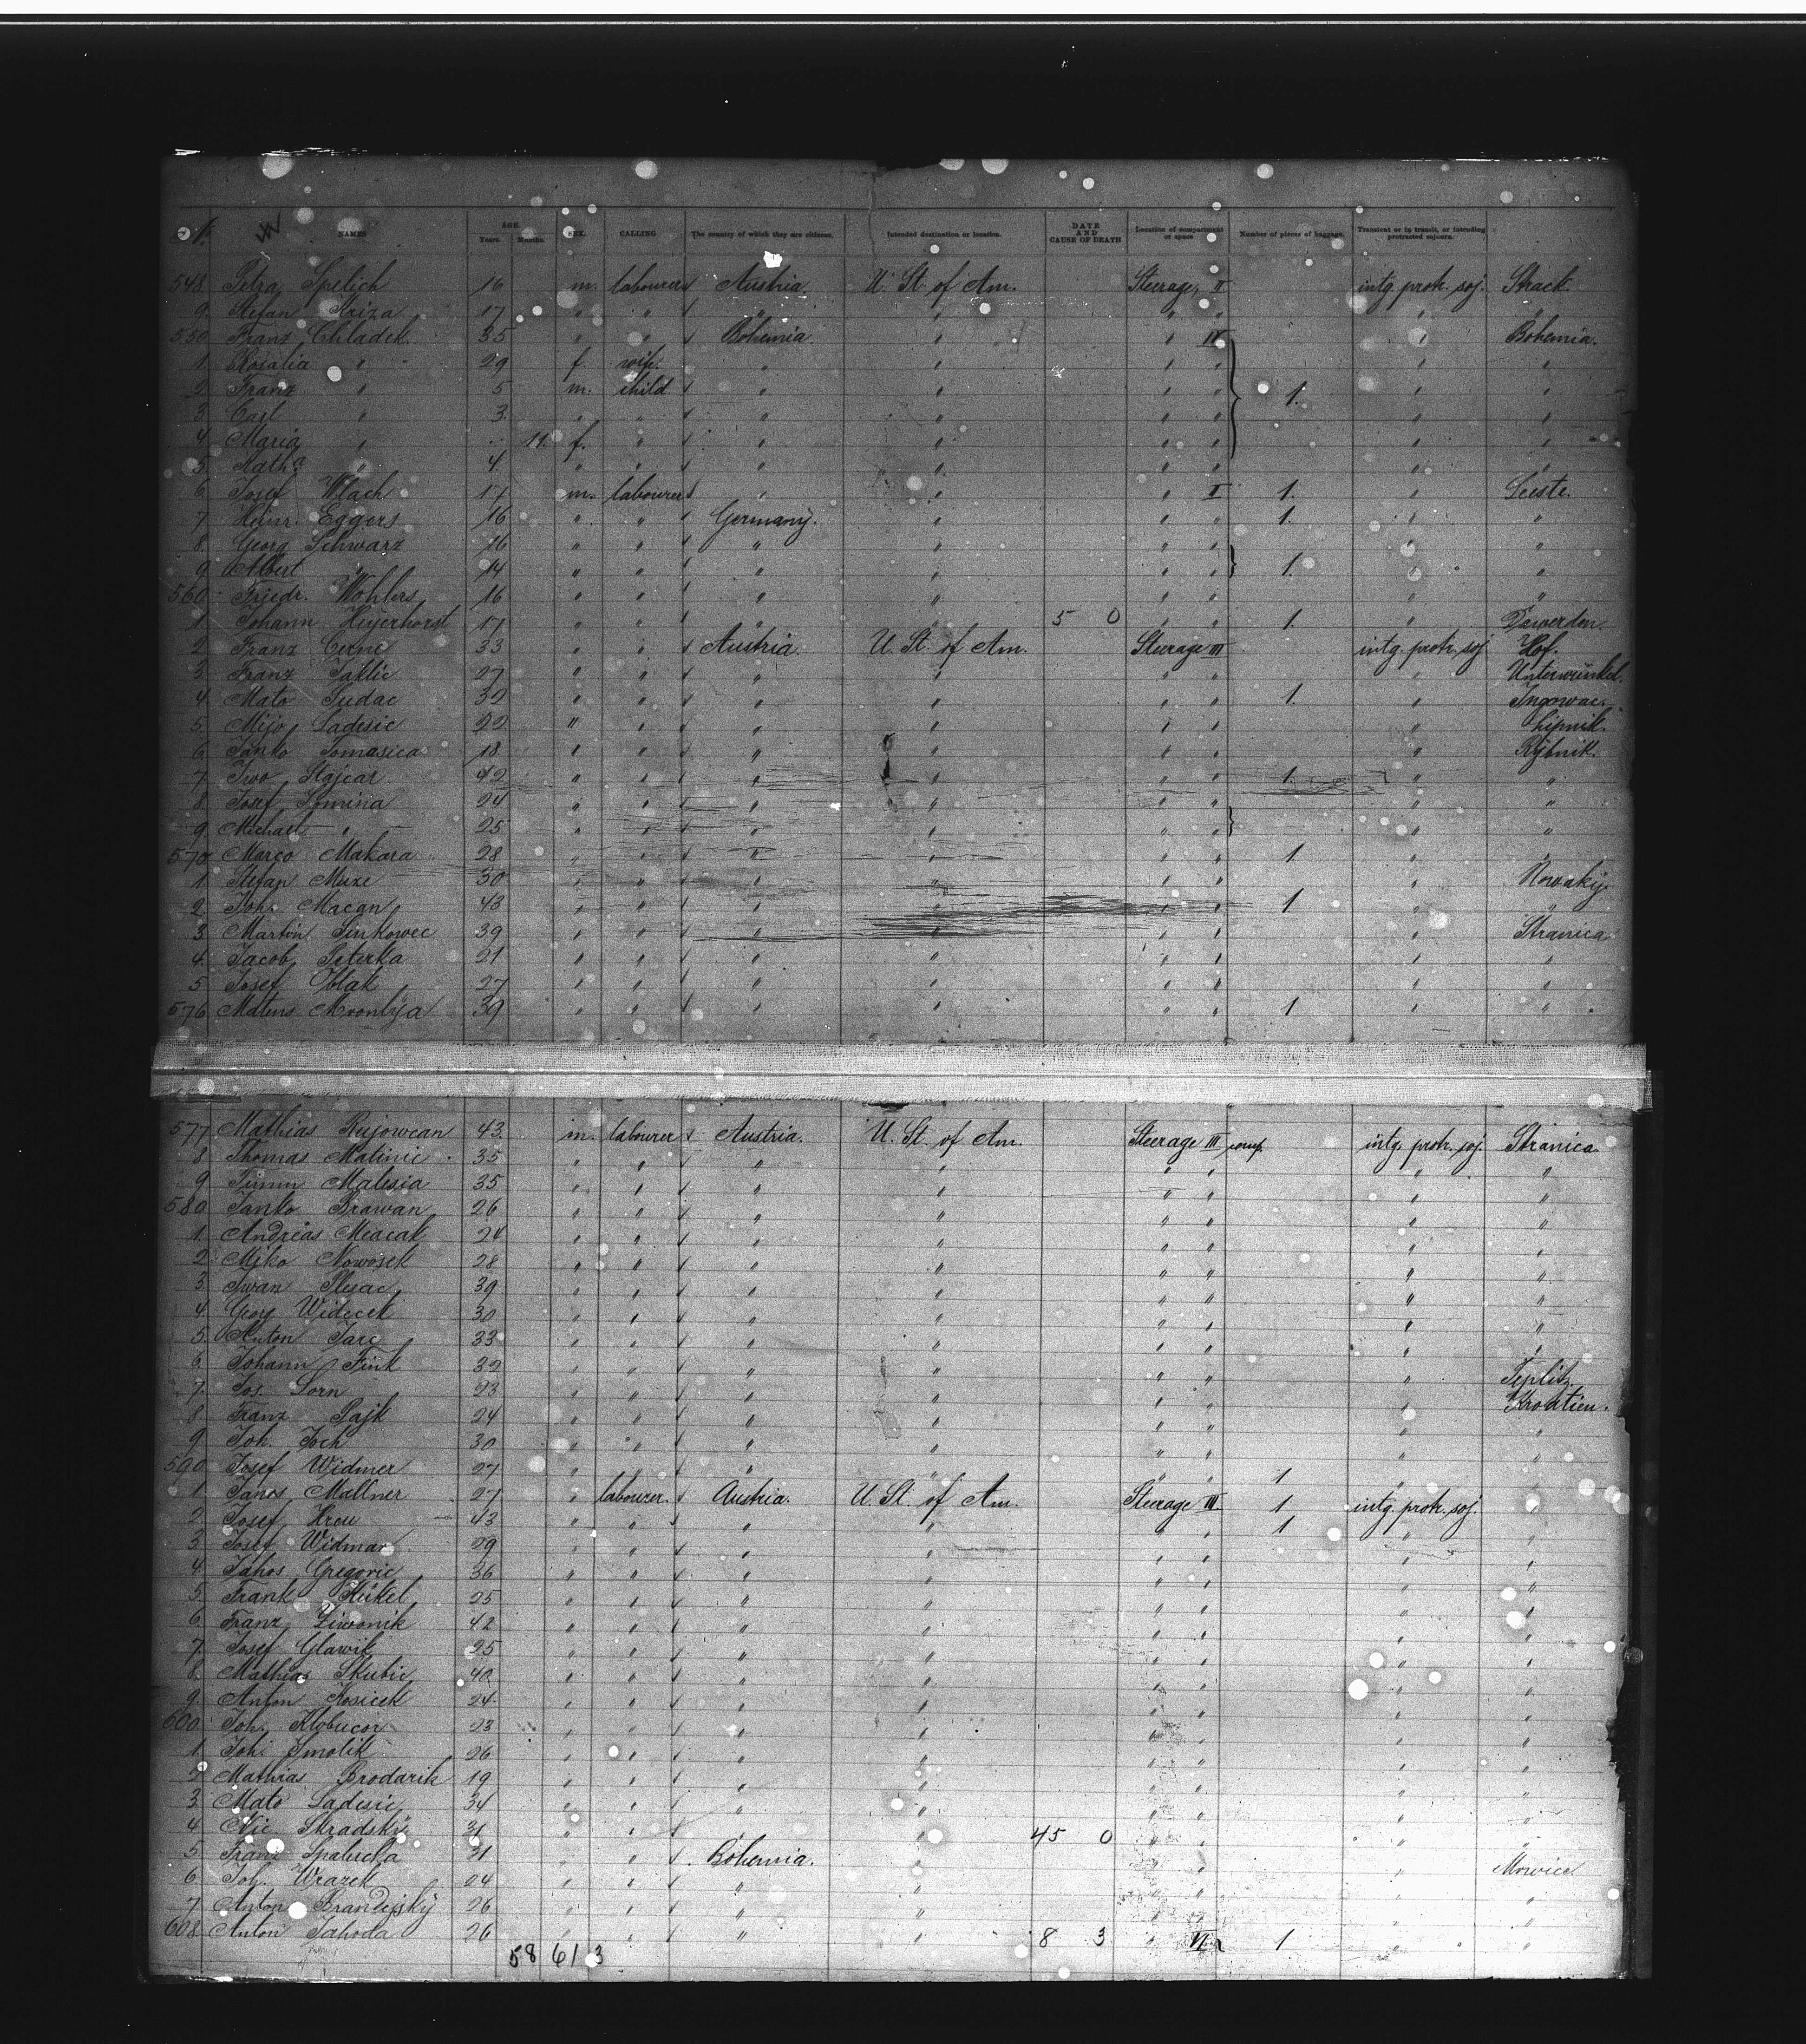 No. NAMES AGE. Years. Months. SEX. CALLING The country of which they are citizens. Intended destination or location. DATE AND CAUSE OF DEATH Location of compartment or space Number of pieces of baggage. Transient or in transit, or intending protracted sojourn.
548 Petra Spelich 16 m. labourer Austria U. St. of Am. Steerage II intg. protr. soj. Strack.
9 Stefan Kriza 17 " " " " " " " "
550 Franz Chladek 35 " " Bohemia " " IV " Bohemia.
1 Rosalia " 29 f. wife " " " " " "
2 Franz " 5 m. child " " " " 1. " "
3 Carl " 3 " " " " " " " "
4 Maria " 11. f. " " " " " " "
5 Kath. " 4. " " " " " " " "
6 Josef Wlach 17 m. labourer " " " I 1. " Leeste.
7 Heinr. Eggers 16 " " Germany. " " " 1. " "
8 Georg Schwarz 16 " " " " " " " "
9 Albert " 14 " " " " " " 1. " "
560 Friedr. Wohlers 16 " " " " " " " "
1 Johann Heyerhorst 17 " " " " 5 0 " " 1. " Dawerden.
2 Franz Cerne 33 " " Austria. U. St. of Am. Steerage III intg. protr. soj Hof.
3 Franz Jaklic 27 " " " " " " " Unterwinkel.
4 Mato Sudac 32 " " " " " " 1. "
5 Mijo Ladesic 22 " " " " " " " Lipnik.
6 Janko Tomasica 18 " " " " " " " Rybnik.
7 Iwo Stajcar 42 " " " " " " 1. " "
8 Josef Somina 24 " " " " " " " "
9 Michael " 25 " " " " " " " "
570 Marco Makara 28 " " " " " " 1 " "
1 Stefan Muze 30 " " " " " " " Nowaky.
2 Joh. Macan 43 " " " " " " 1 " "
3 Martin Sinkowec 39 " " " " " " " Stranica
4 Jacob Peterka 21 " " " " " " " "
5 Josef Oblak 27 " " " " " " " "
576 Mateus Mronlya 39 " " " " " " 1 " "
577 Mathias Rujowcan 43. m. labourer Austria. U. St. of Am. Steerage III comp. intg. protr. soj. Stranica
8 Thomas Malinic 35 " " " " " " " "
9 Timm Malesia 35 " " " " " " " "
580 Janko Brawan 26 " " " " " " " "
1. Andreas Meacak 24 " " " " " " " "
2 Mjko Nowosek 28 " " " " " " " "
3 Iwan Plesac 39 " " " " " " " "
4. Georg Widecek 30 " " " " " " " "
5. Anton Jarc 33 " " " " " " " "
6 Johann Fink 32 " " " " " " " Teplitz
7. Jos. Lorn 23 " " " " " " " Kroatien.
8 Franz Pajk 24 " " " " " " " "
9 Joh. Joch 30 " " " " " " " "
590 Josef Widmer 27 " " " " " " 1 " "
1 Janes Mallner 27 " labourer. Austria. U. St. of Am. Steerage III 1 intg. protr. soj. "
2 Josef Hren 43 " " " " " " 1 " "
3 Josef Widmar 29 " " " " " " " "
4. Jahos Gregoric 36 " " " " " " " "
5. Frank Hukel 25 " " " " " " " "
6. Franz Ziwonik 42 " " " " " " " "
7. Josef Glawik 25 " " " " " " " "
8. Mathias Skubic 40 " " " " " " " "
9. Anton Kosicek 24 " " " " " " " "
600 Joh. Klobucor 23 " " " " " " " "
1 Joh. Smolik 26 " " " " " " " "
2 Mathias Brodarik 19 " " " " " " " "
3. Mato Ladesic 34 " " " " " " " "
4 Nic Stradsky 31 " " " " 45 0 " " " "
5 Franz Spalucka 31 " " Bohemia. " " " " Mowice
6 Joh. Wrazek 24 " " " " " " " "
7 Anton Brandejsky 26 " " " " " " " "
608 Anton Jahoda 26 " " " " 8 3 " VI 1 " "
58 61 3